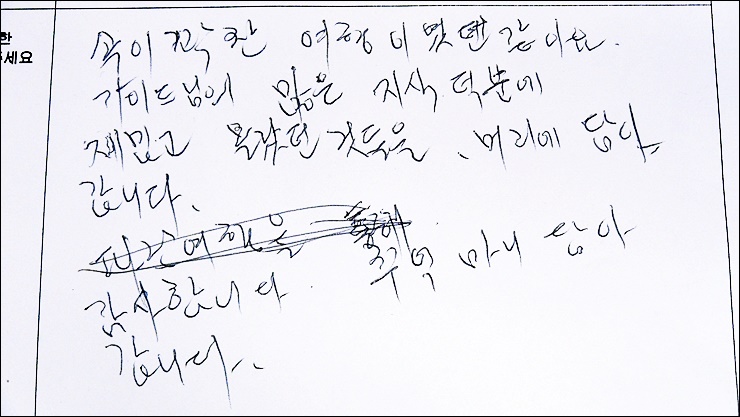 한
세요
속이 꽉 찬 여행이었던 같아요.
가이드님의 많은 지식 덕분에
재밌고 몰랐던 것들을 머리에 담아
갑니다.
감사합니다. 추억 마니 담아
갑니다..